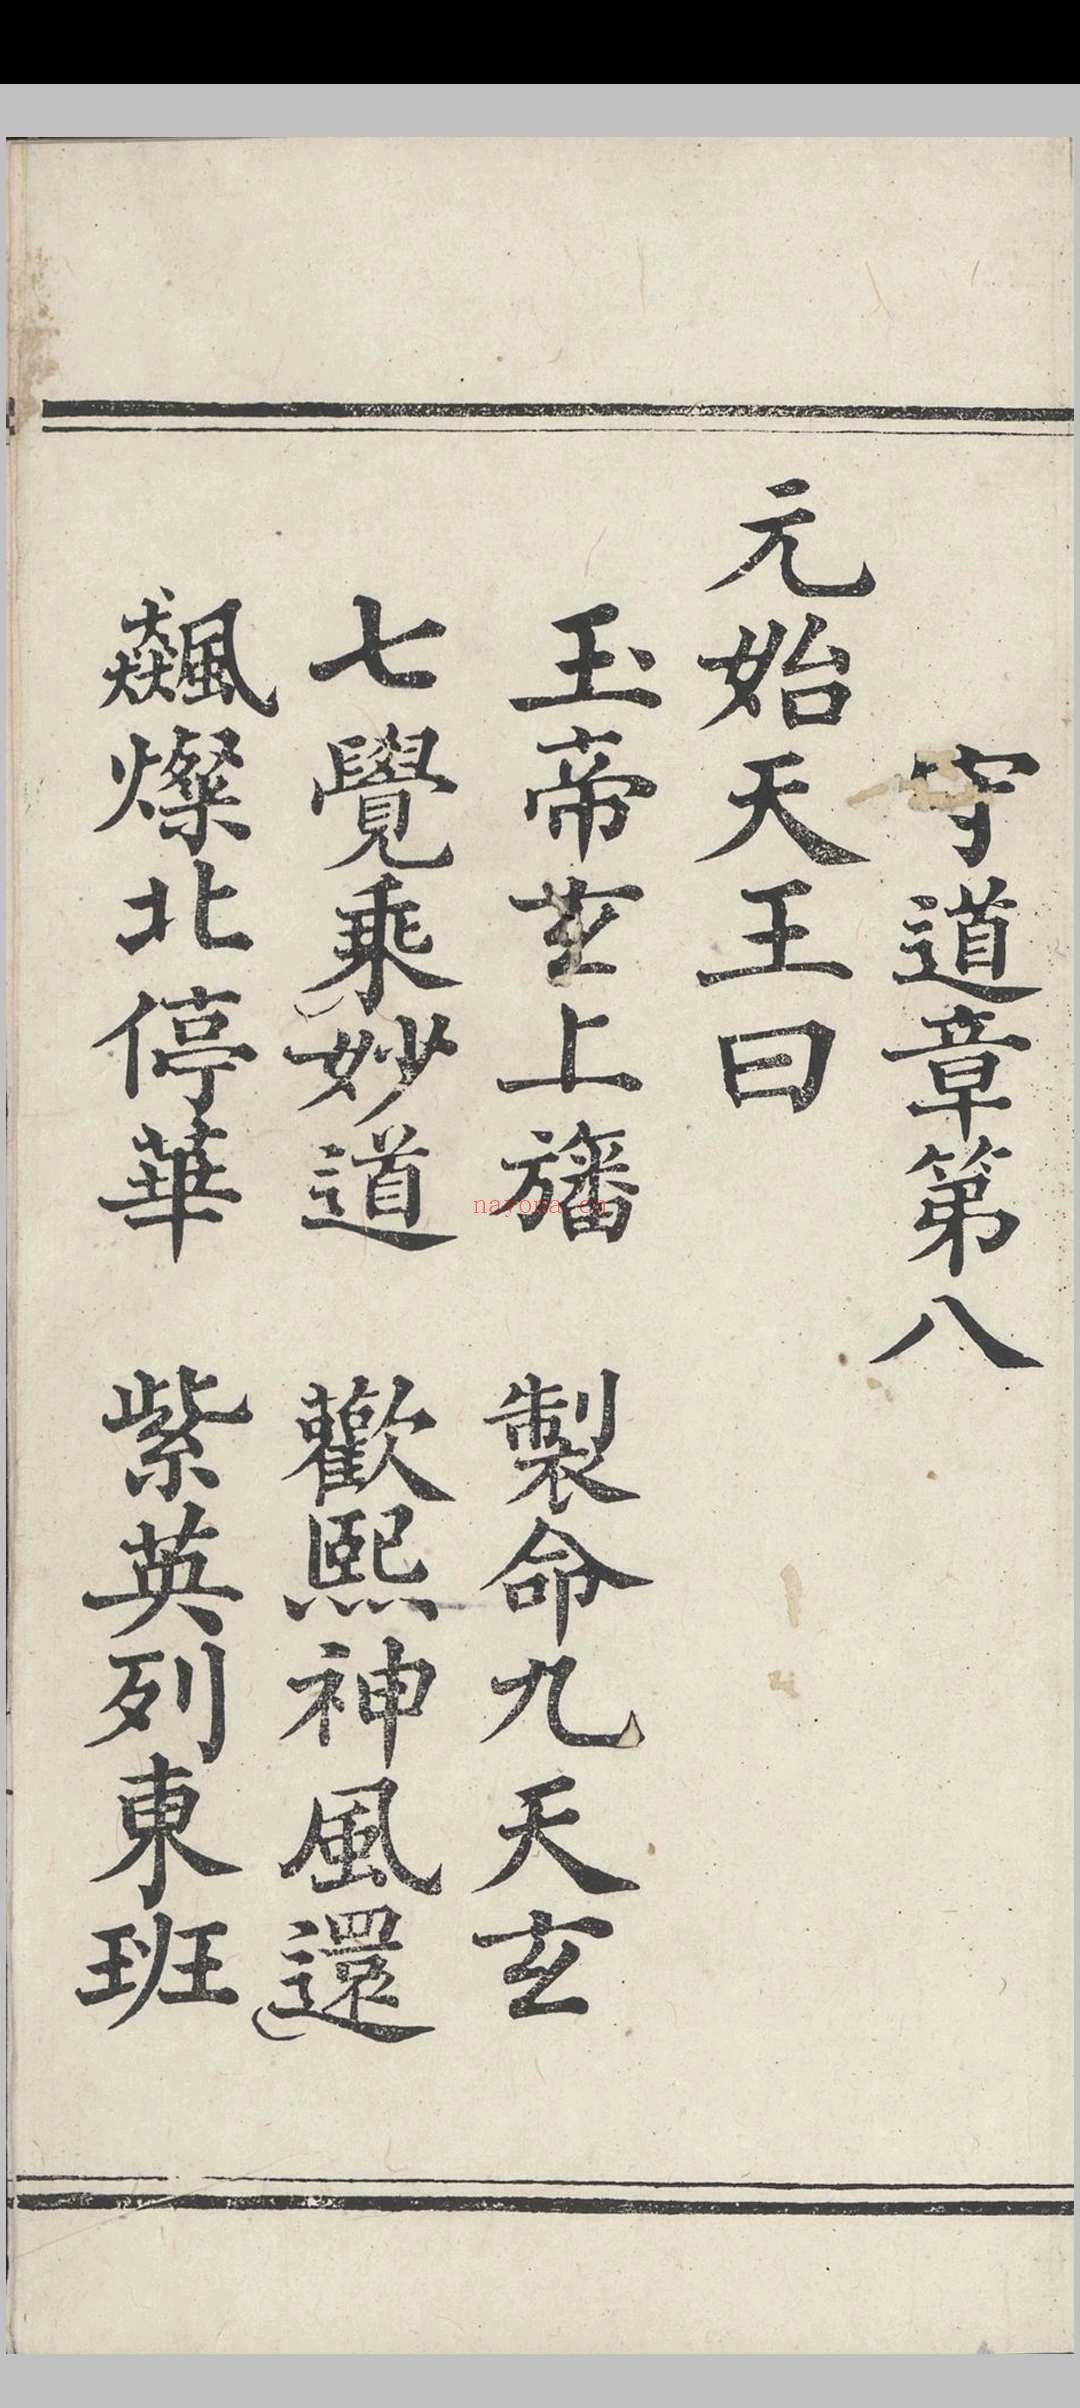 守道章第八
元始天王曰
玉帝玄上旛　製命九天玄
七覺乘妙道　歡熙神風還
飇燦北停華　紫英列東班
nayona.cn